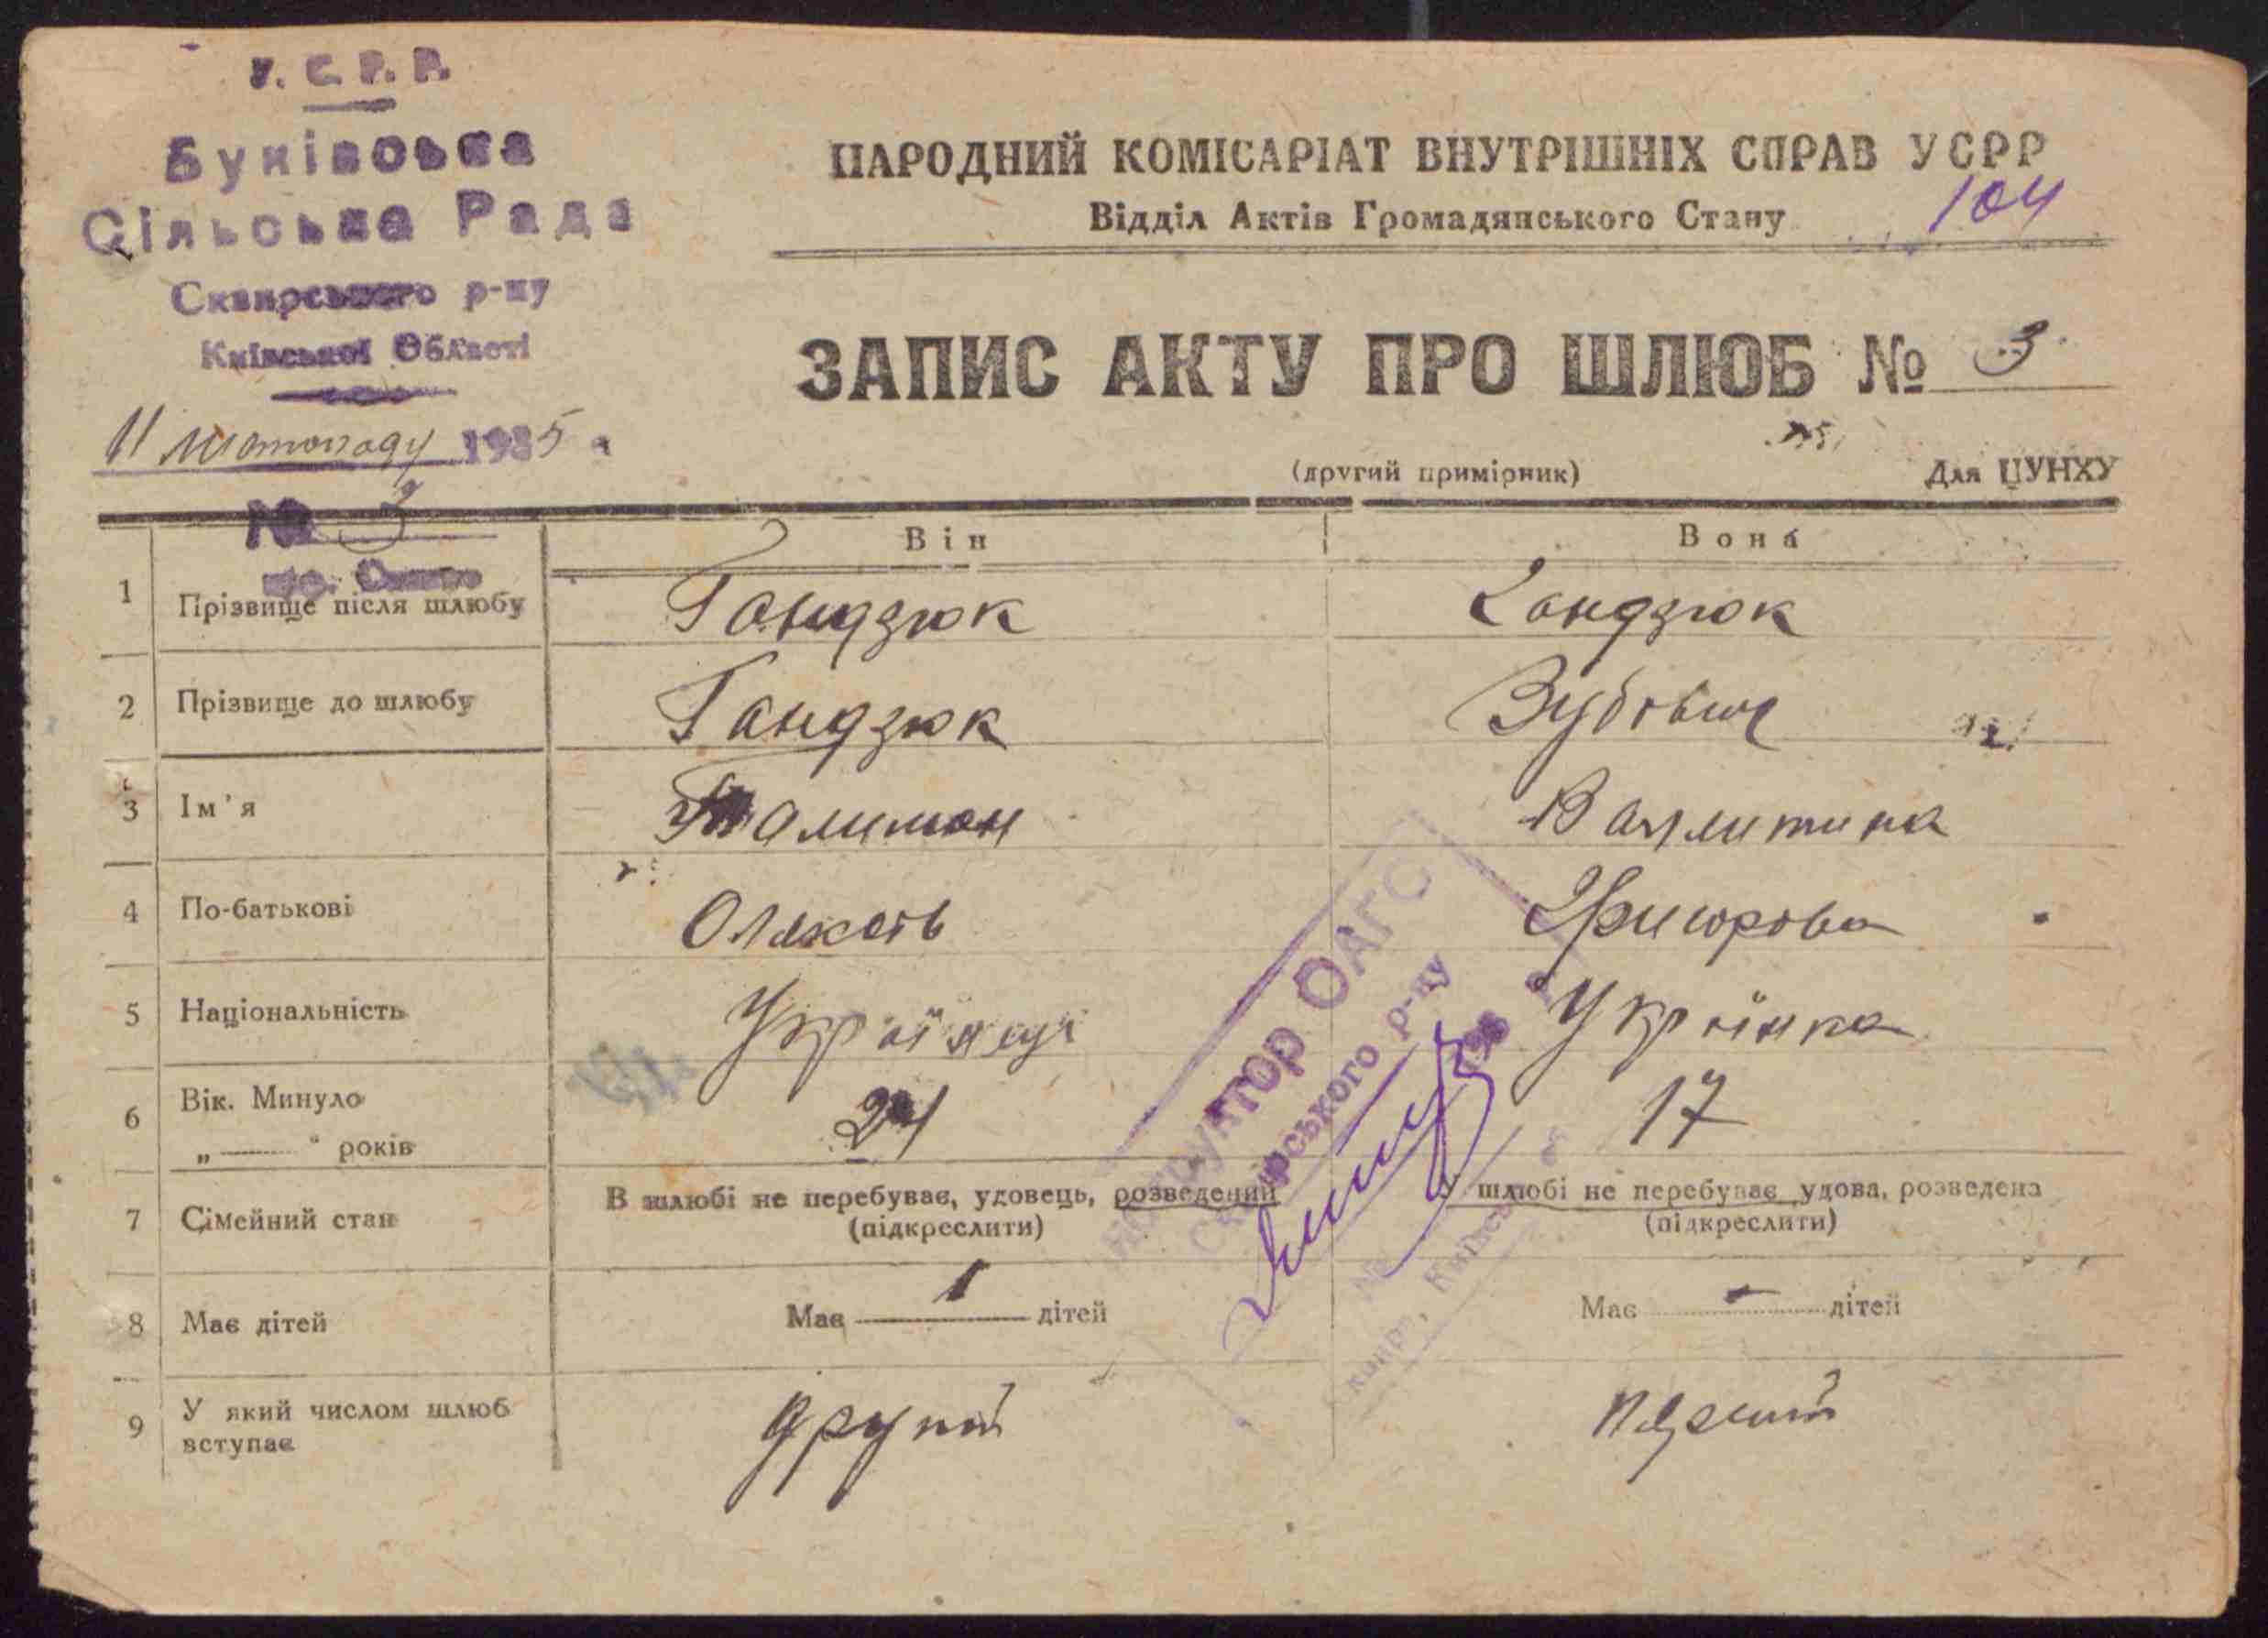 У. С. Р. Р.
Буківська
Сільська Рада
Сквирського р-ну
Київської Області
11 листопаду 1935
№ 3
НАРОДНИЙ КОМІСАРІАТ ВНУТРІШНІХ СПРАВ УСРР
Відділ Актів Громадянського Стану 104
ЗАПИС АКТУ ПРО ШЛЮБ № 3
(другий примірник) Для ЦУНХУ
Він Вона
1 Прізвище після шлюбу Гандзюк Гандзюк
2 Прізвище до шлюбу Гандзюк
3 Ім'я
4 По-батькові
5 Національність Українець Українка
6 Вік. Минуло 24 17
„ “ років
7 Сімейний стан В шлюбі не перебуває, удовець, розведений У шлюбі не перебуває, удова, розведена
(підкреслити) (підкреслити)
8 Має дітей Має 1 дітей Має - дітей
9 У який числом шлюб вступає другий перший
Інструктор ОАГС
Сквирського р-ну